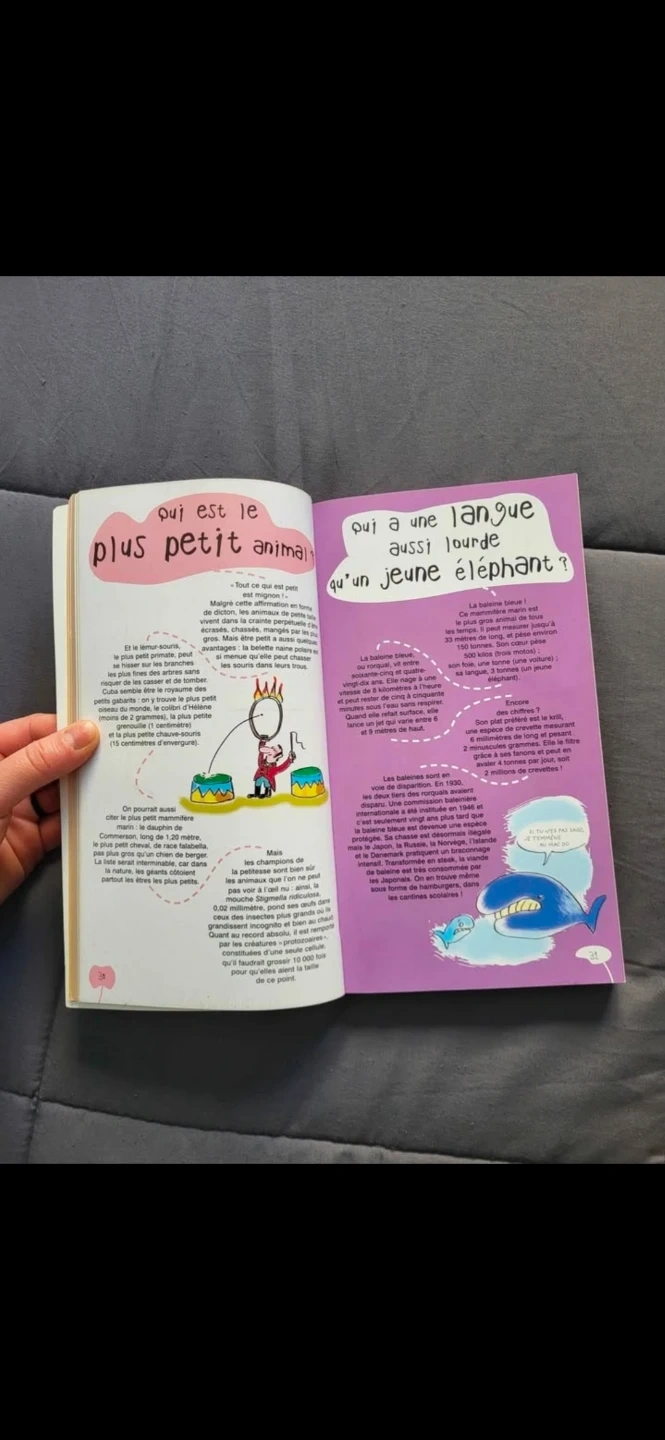 Qui est le
plus petit animal ?
« Tout ce qui est petit
est mignon ! »
Malgré cette affirmation en forme
de dicton, les animaux de petite taille
vivent dans la crainte perpétuelle d'être
écrasés, chassés, mangés par les plus
gros. Mais être petit a aussi quelques
avantages : la belette naine polaire est
si menue qu'elle peut chasser
les souris dans leurs trous.
Et le lémur-souris,
le plus petit primate, peut
se hisser sur les branches
les plus fines des arbres sans
risquer de les casser et de tomber.
Cuba semble être le royaume des
petits gabarits : on y trouve le plus petit
oiseau du monde, le colibri d'Hélène
(moins de 2 grammes), la plus petite
grenouille (1 centimètre)
et la plus petite chauve-souris
(15 centimètres d'envergure).
On pourrait aussi
citer le plus petit mammifère
marin : le dauphin de
Commerson, long de 1,20 mètre,
le plus petit cheval, de race falabella,
pas plus gros qu'un chien de berger.
La liste serait interminable, car dans
la nature, les géants côtoient
partout les êtres les plus petits.
Mais
les champions de
la petitesse sont bien sûr
les animaux que l'on ne peut
pas voir à l'œil nu : ainsi, la
mouche Stigmella ridiculosa,
0,02 millimètre, pond ses œufs dans
ceux des insectes plus grands où ils
grandissent incognito et bien au chaud.
Quant au record absolu, il est remporté
par les créatures « protozoaires »,
constituées d'une seule cellule,
qu'il faudrait grossir 10 000 fois
pour qu'elles aient la taille
de ce point.
Qui a une langue
aussi lourde
qu'un jeune éléphant ?
La baleine bleue !
Ce mammifère marin est
le plus gros animal de tous
les temps. Il peut mesurer jusqu'à
33 mètres de long, et pèse environ
150 tonnes. Son cœur pèse
500 kilos (trois motos) ;
son foie, une tonne (une voiture) ;
sa langue, 3 tonnes (un jeune
éléphant).
La baleine bleue,
ou rorqual, vit entre
soixante-cinq et quatre-
vingt-dix ans. Elle nage à une
vitesse de 8 kilomètres à l'heure
et peut rester de cinq à cinquante
minutes sous l'eau sans respirer.
Quand elle refait surface, elle
lance un jet qui varie entre 6
et 9 mètres de haut.
Encore
des chiffres ?
Son plat préféré est le krill,
une espèce de crevette mesurant
6 millimètres de long et pesant
2 minuscules grammes. Elle le filtre
grâce à ses fanons et peut en
avaler 4 tonnes par jour, soit
2 millions de crevettes !
Les baleines sont en
voie de disparition. En 1930,
les deux tiers des rorquals avaient
disparu. Une commission baleinière
internationale a été instituée en 1946 et
c'est seulement vingt ans plus tard que
la baleine bleue est devenue une espèce
protégée. Sa chasse est désormais illégale
mais le Japon, la Russie, la Norvège, l'Islande
et le Danemark pratiquent un braconnage
intensif. Transformée en steak, la viande
de baleine est très consommée par
les Japonais. On en trouve même
sous forme de hamburgers, dans
les cantines scolaires !
SI TU N'ES PAS SAGE,
JE T'EMMÈNE
AU MAC DO